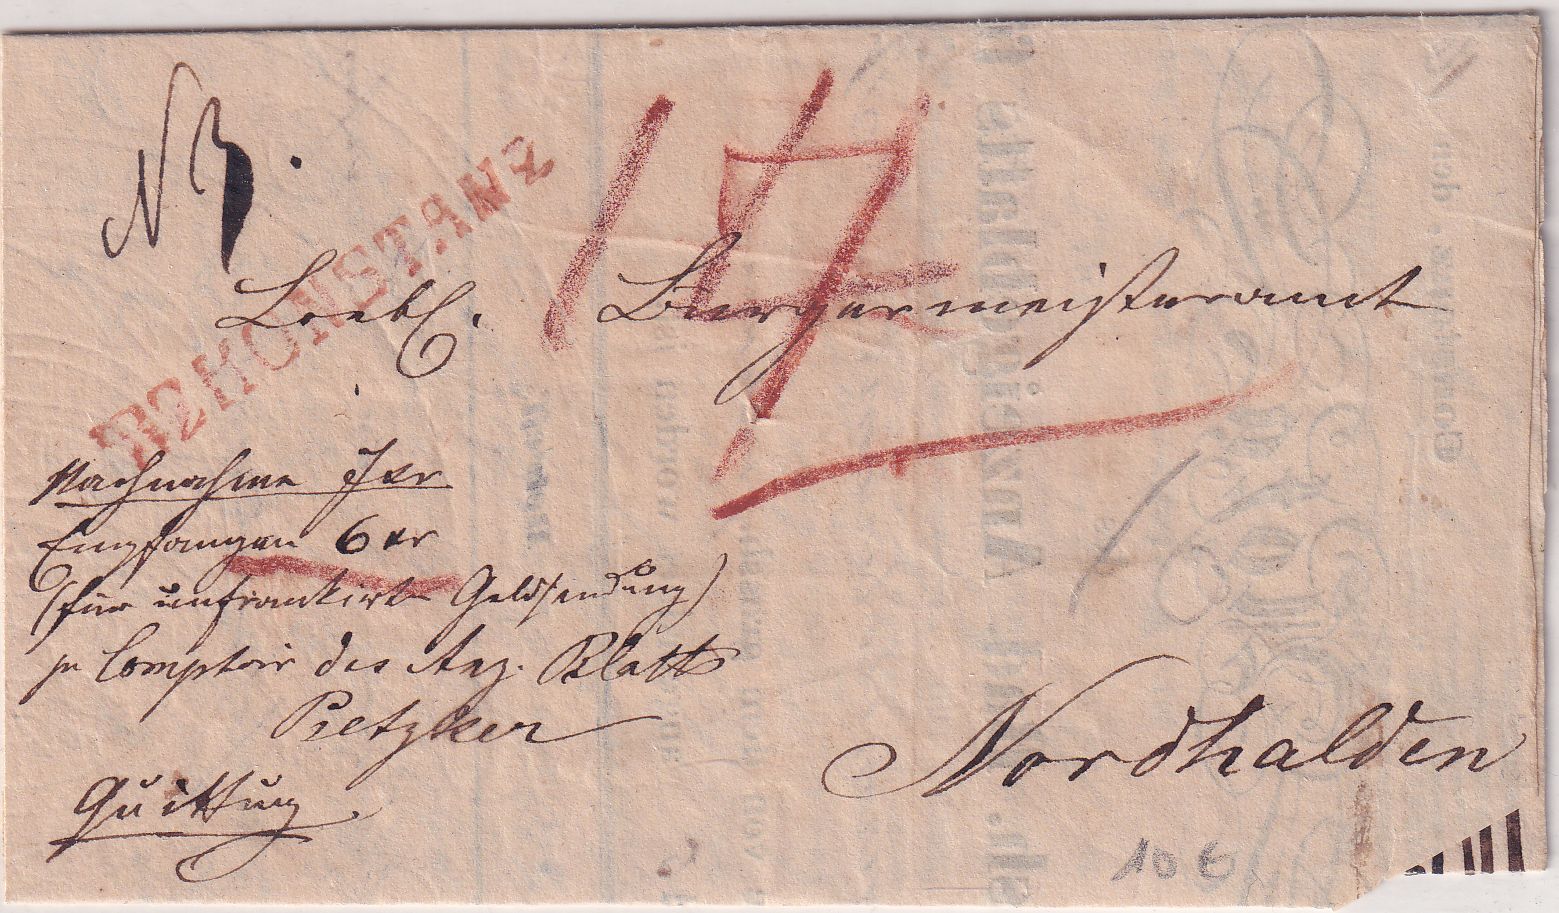 N 3.
R2 KONSTANZ
17
Loebl. Burgermeisteramt
Nachnahme 7 xr
Empfangen 6 xr
(für unfrankirte Geldsendung)
Comptoir des Anz. Blatts
Pretzker
Quittung.
Nordhalden
10 €